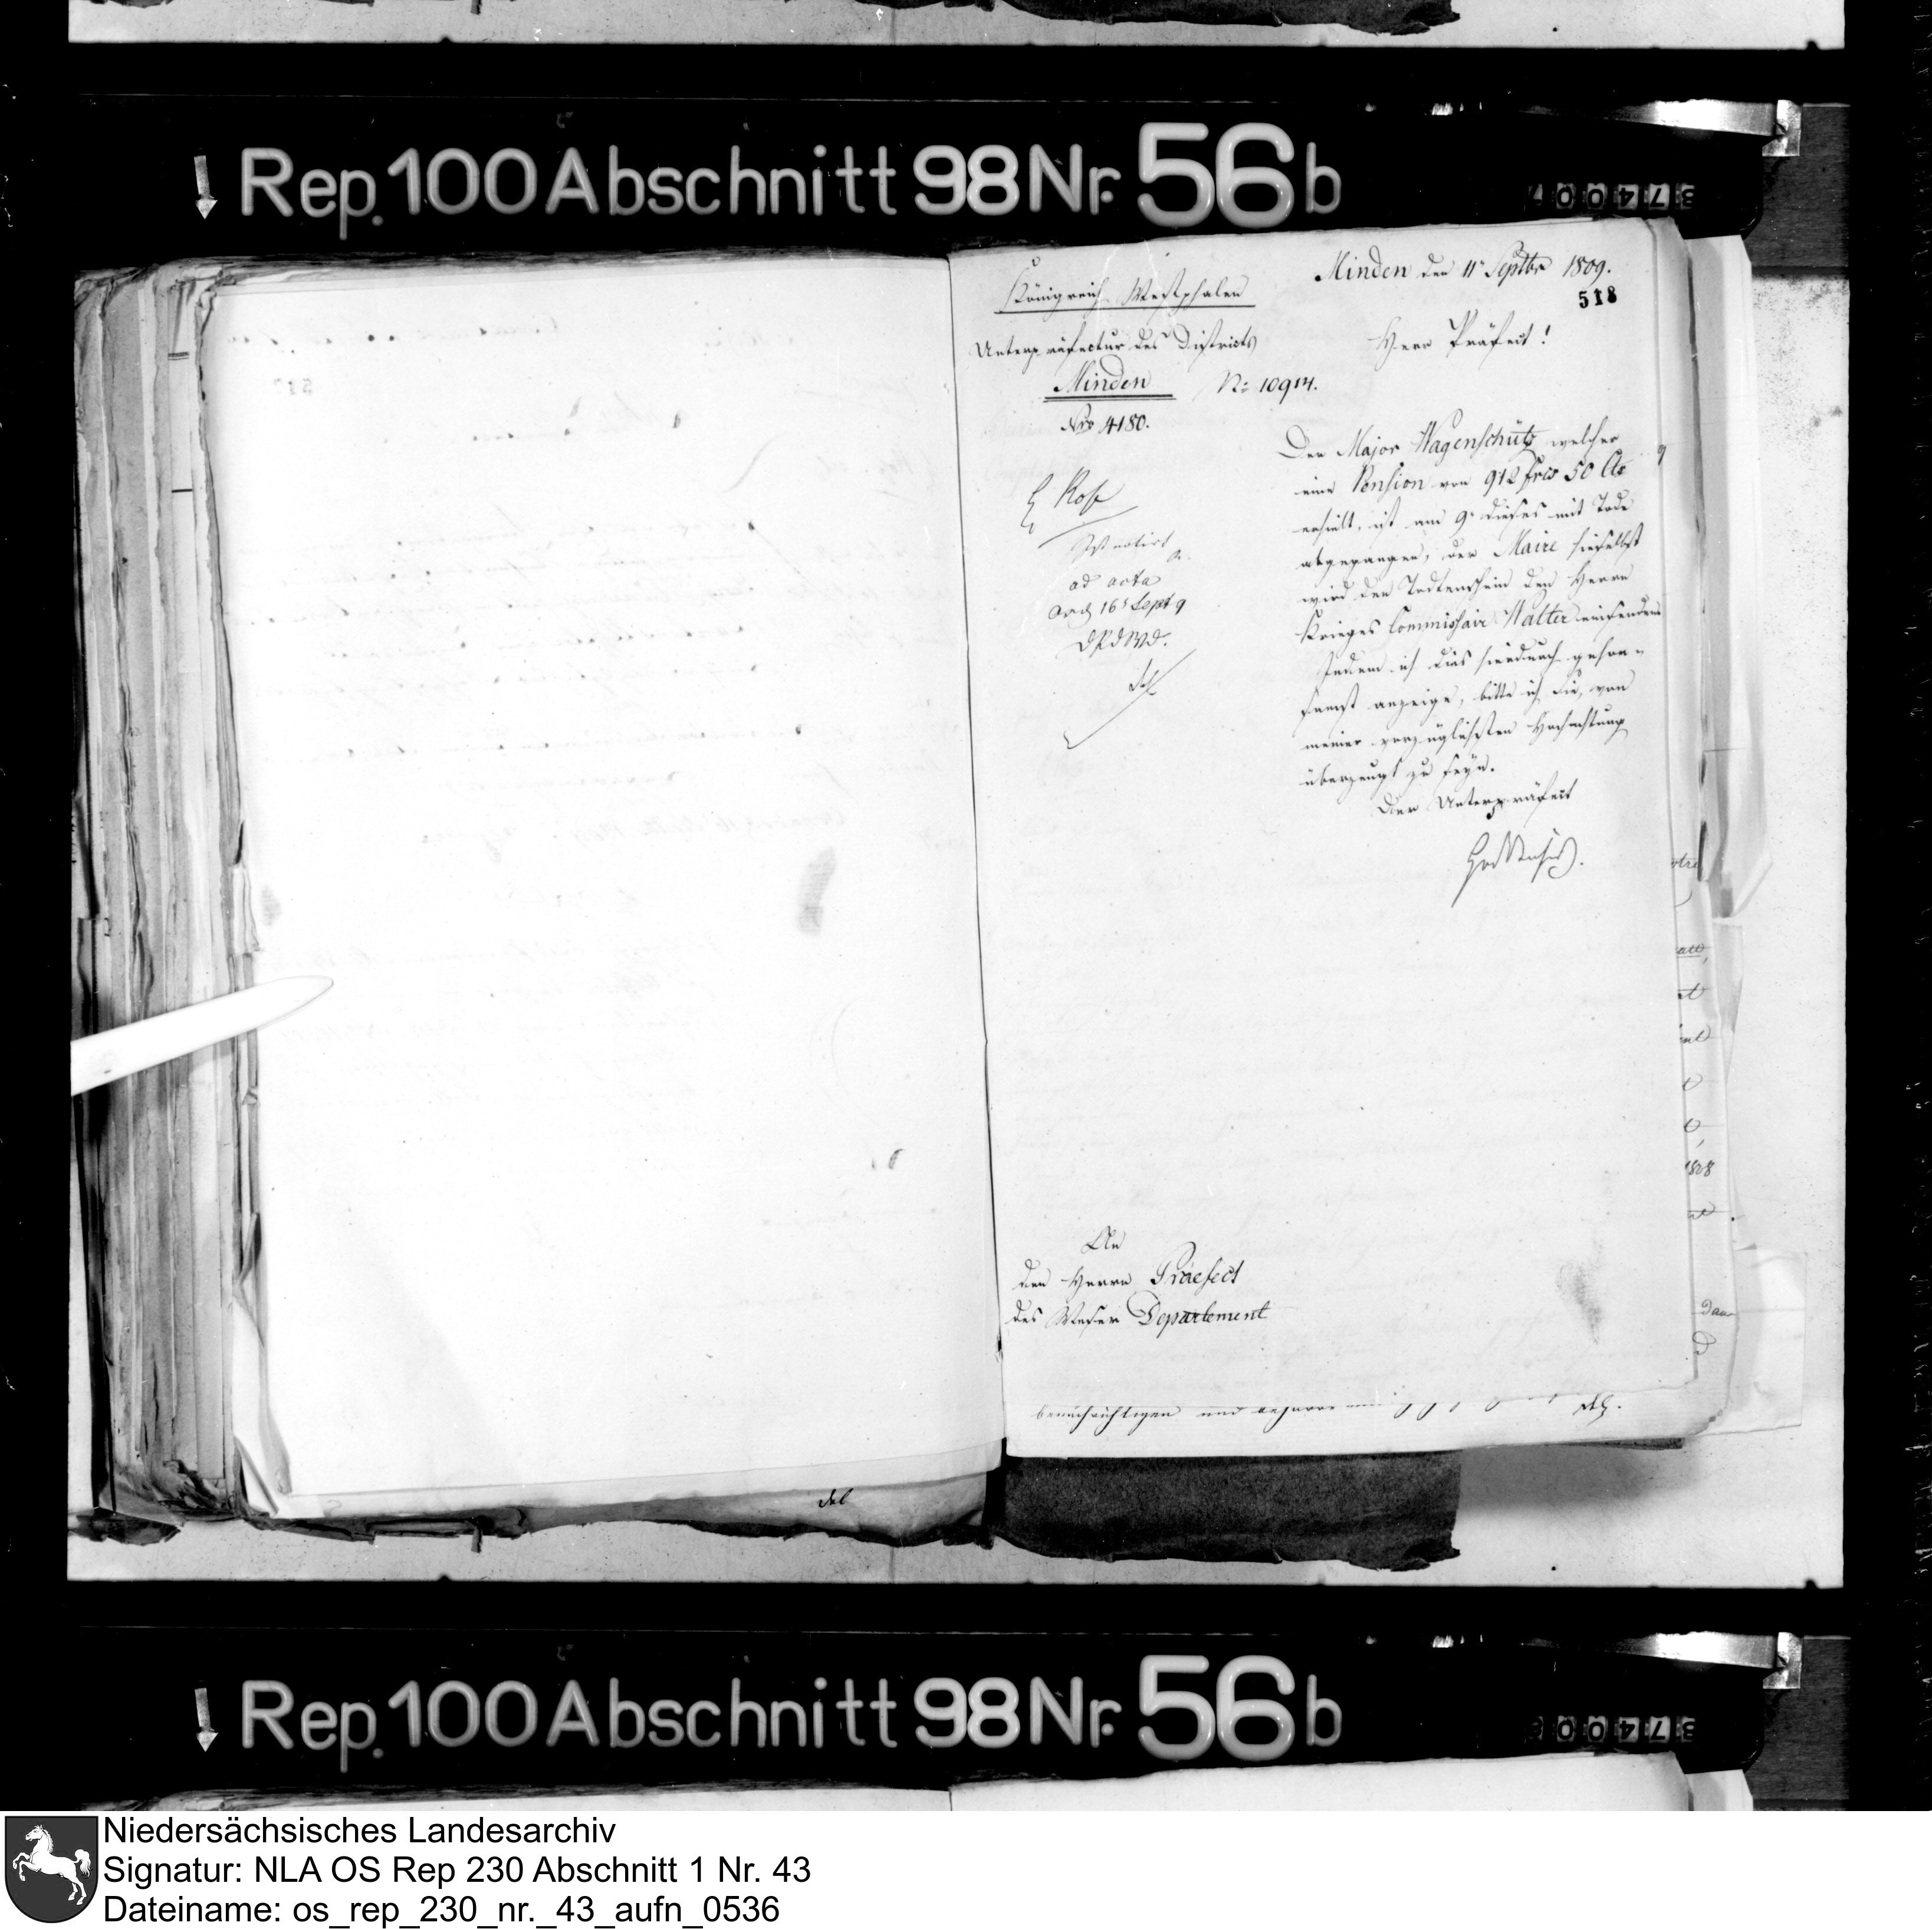 Rep. 100 Abschnitt 98 Nr. 56 b
374007
Minden den 11t Septbr 1809.
518
Königreich Westphalen
Unterpräfectur des Districts
Minden
No 10914.
Nro 4180.
Herr Präfect!
Der Major Wagenschütz welcher
eine Pension von 912 frcs 50 Cts
erhielt, ist am 9t dieses mit Tode
abgegangen; der Maire hieselbst
wird den Todtenschein dem Herrn
Krieges Commissair Walter einsenden
Indem ich dies hierdurch gehor-
samst anzeige, bitte ich Sie, von
meiner vorzüglichsten Hochachtung
überzeugt zu seyn.
Der Unterpräfect
Ist notirt
ad acta
16t Sept 9
D P d W D.
An
den Herrn Präefect
des Weser Departement
benachrichtigen und
Rep. 100 Abschnitt 98 Nr. 56 b
Niedersächsisches Landesarchiv
Signatur: NLA OS Rep 230 Abschnitt 1 Nr. 43
Dateiname: os_rep_230_nr._43_aufn_0536